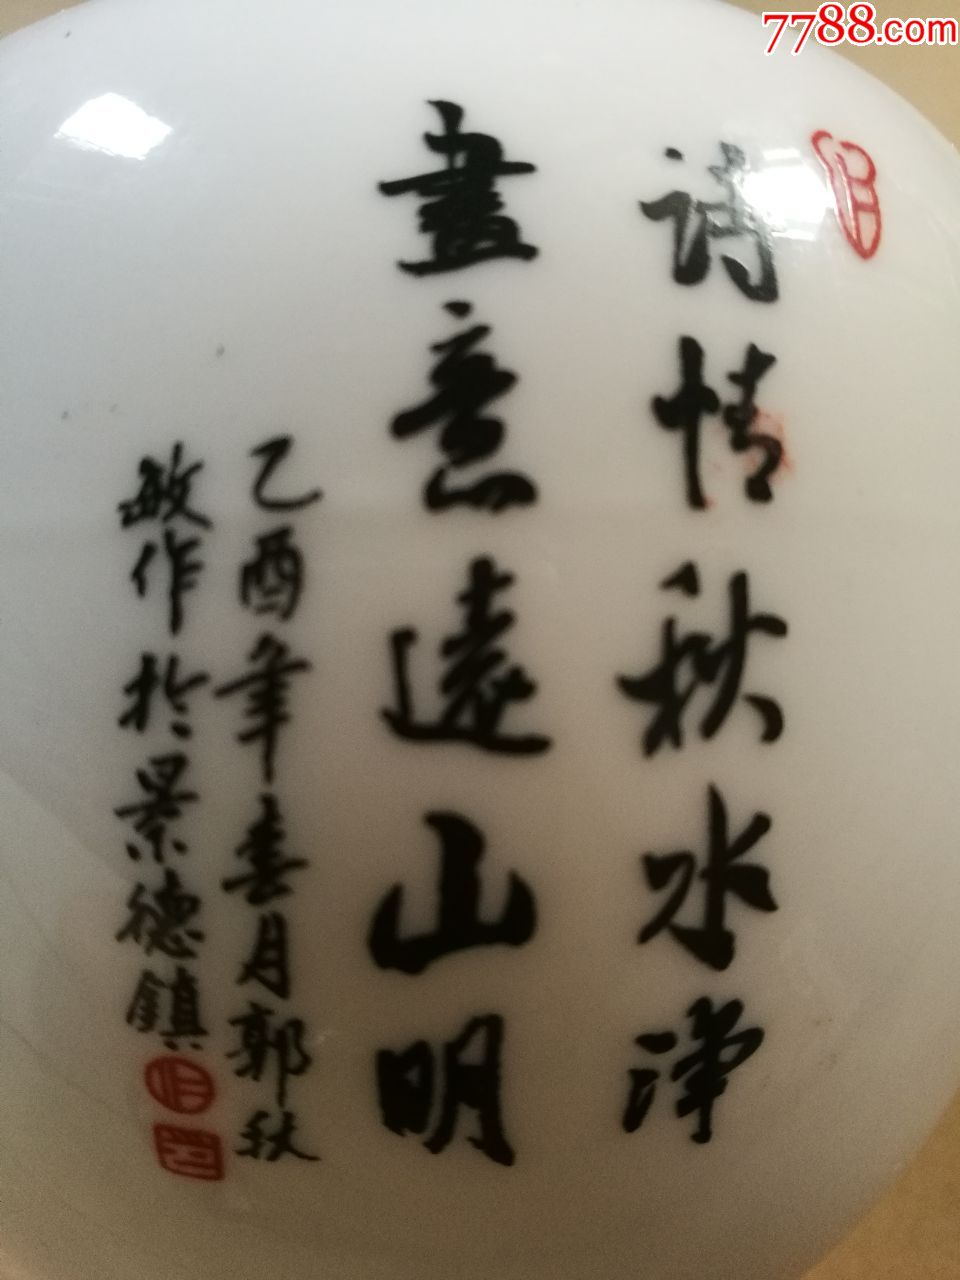 7788.com
诗情秋水净
畫意遠山明
乙酉年春月郭秋
敏作於景德鎮